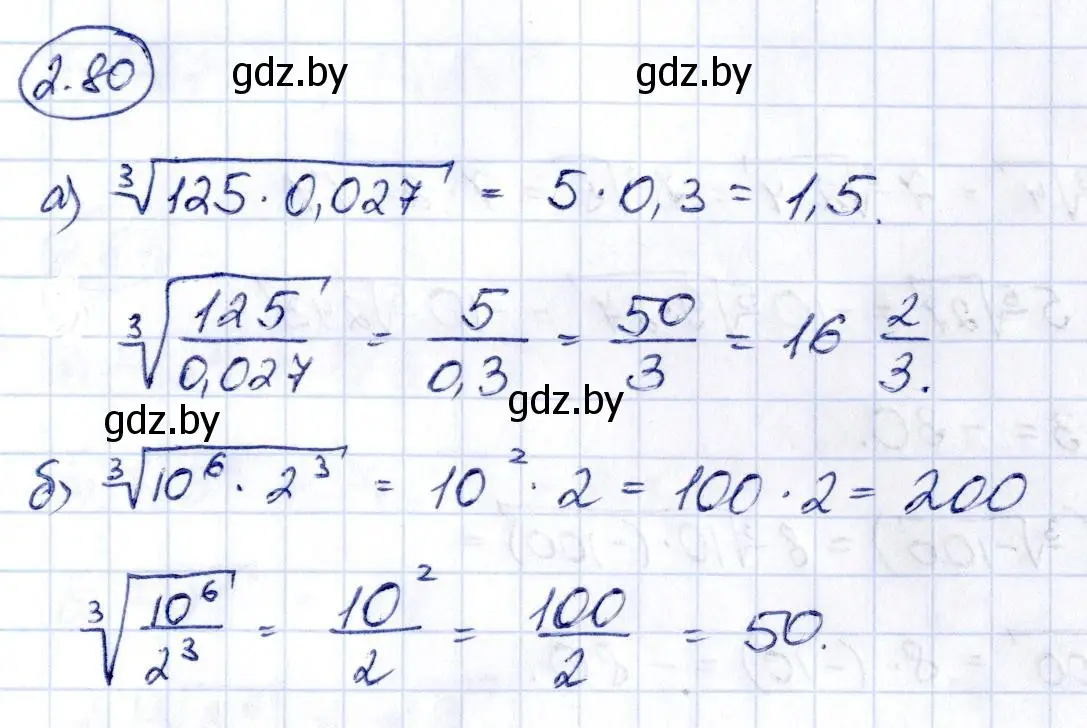 2.80
gdz.by gdz.by
а) ∛(125 · 0,027) = 5 · 0,3 = 1,5.
∛(125/0,027) = 5/0,3 = 50/3 = 16 2/3.
gdz.by gdz.by
б) ∛(10⁶ · 2³) = 10² · 2 = 100 · 2 = 200
∛(10⁶/2³) = 10²/2 = 100/2 = 50.